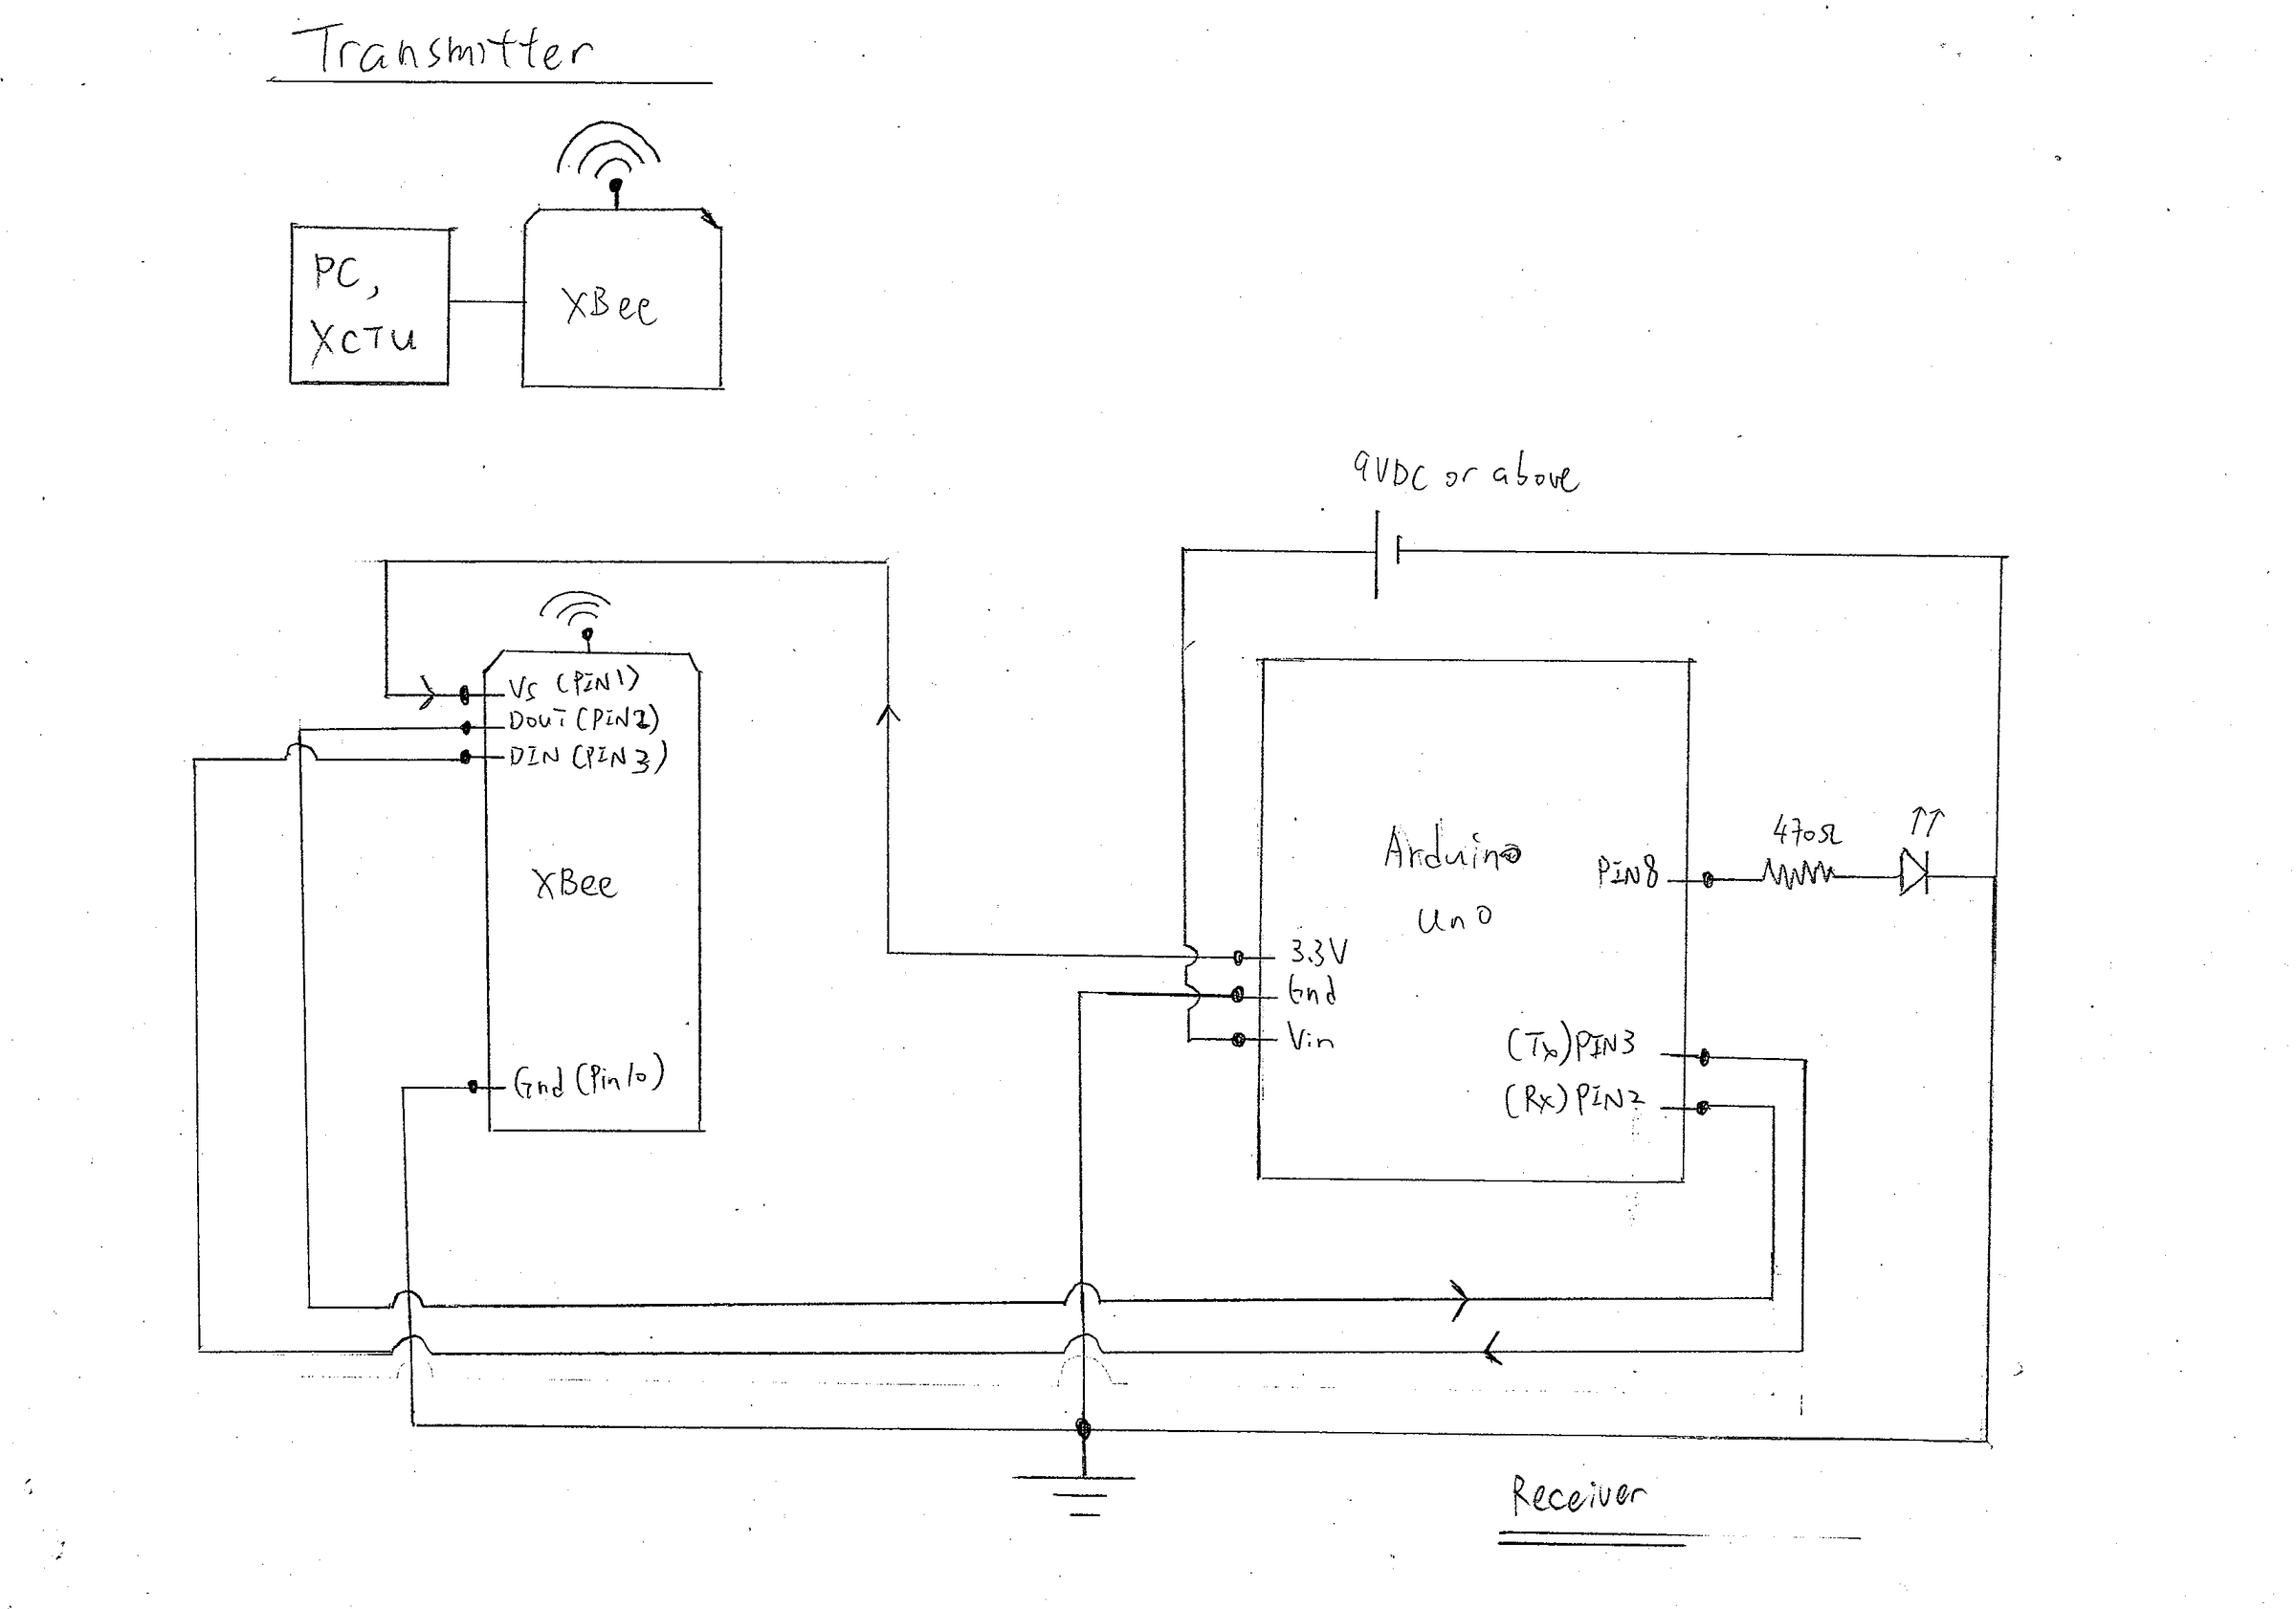 Transmitter
PC,
XCTU
XBee
9VDC or above
Vs (PIN1)
DOUT (PIN2)
DIN (PIN3)
XBee
Gnd (Pin10)
Arduino
Uno
PIN8
470Ω
3.3V
Gnd
Vin
(Tx)PIN3
(Rx)PIN2
Receiver